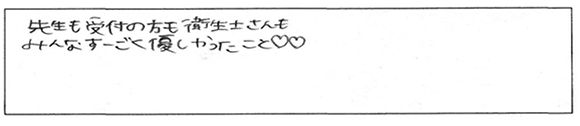 先生も受付の方も衛生士さんも
みんなすーごく優しかったこと♡♡